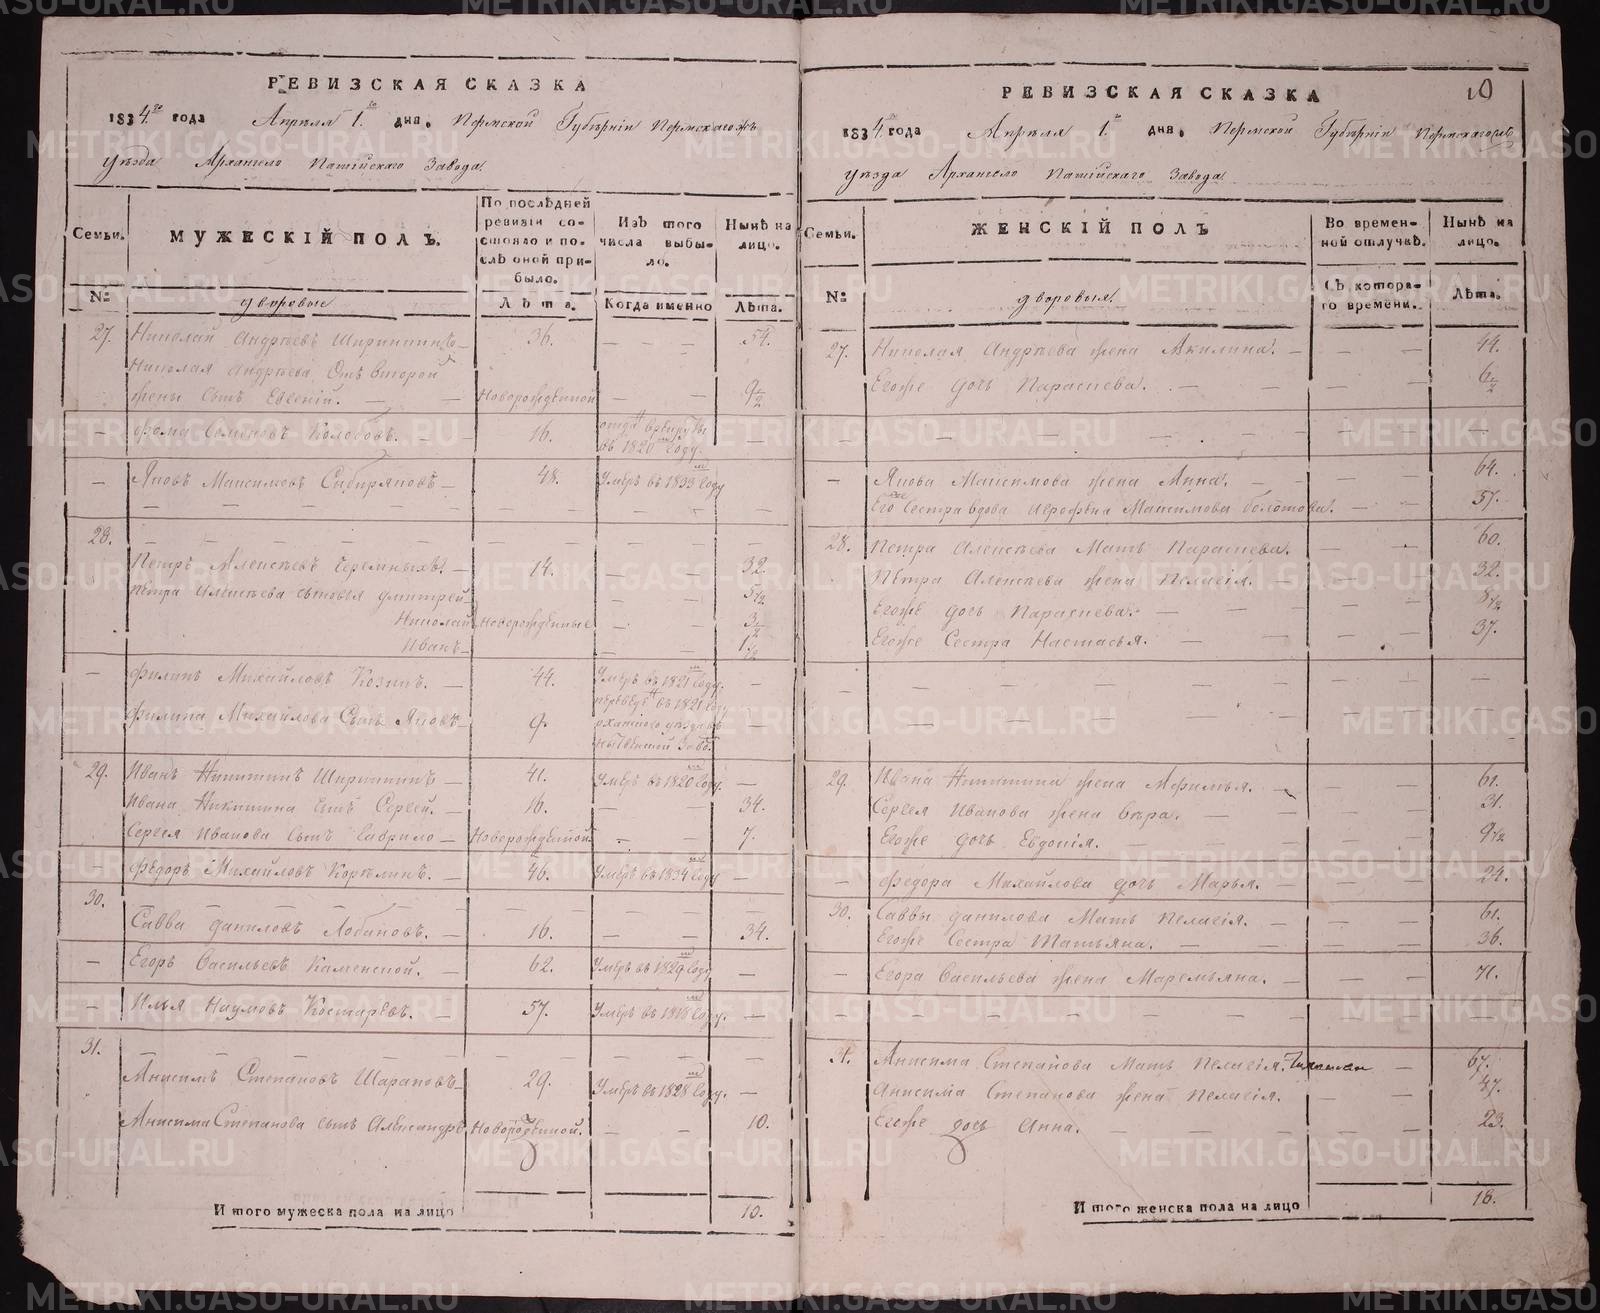 РЕВИЗСКАЯ СКАЗКА
1834го года Апреля 1го дня. Пермской Губерніи Пермскагожъ
уѣзда Архангело Пашійскаго Завода.
Семьи.
МУЖЕСКІЙ ПОЛЪ.
По послѣдней ревизіи состояло и послѣ оной прибыло.
Изъ того числа выбыло.
Нынѣ на лицо.
№
дворовые
Лѣта.
Когда именно
Лѣта.
27. Николай Андрѣевъ Ширинкинъ 36. 54.
Николая Андрѣева Отъ второй
жены сынъ Евгеній. Новорожденной 9 1/2
Фома Семеновъ Колобовъ. 16. отданъ врекруты
въ 1820м году.
Яковъ Максимовъ Сибиряковъ 48. Умеръ въ 1833м году
28.
Петръ Алексѣевъ Черемныхъ. 14. 32.
Петра Алексѣева сыновья Дмитрей 5 1/2
Николай Новорожденные 3 1/2
Иванъ 1/12
Филипъ Михайловъ Козинъ. 44. Умеръ въ 1821м году.
Филипа Михайлова Сынъ Яковъ 9. переведенъ въ 1821 году
29. Иванъ Никитинъ Ширинкинъ 41. Умеръ въ 1820м году.
Ивана Никитина сынъ Сергей. 16. 34.
Сергея Иванова сынъ Гаврило Новорожденной 7.
Федоръ Михайловъ Корелинъ. 46. Умеръ въ 1834м году
30.
Савва Даниловъ Лобановъ. 16. 34.
Егоръ Васильевъ Каменской. 62. Умеръ въ 1829м году
Илья Наумовъ Костаревъ. 57. Умеръ въ 1818м году.
31.
Анисимъ Степановъ Шараповъ 29. Умеръ въ 1828м году.
Анисима Степанова сынъ Александръ Новорожденной. 10.
Итого мужеска пола на лицо 10.
10
РЕВИЗСКАЯ СКАЗКА
1834. года Апреля 1го дня. Пермской Губерніи Пермскагожъ
уѣзда Архангело Пашійскаго Завода.
Семьи.
ЖЕНСКІЙ ПОЛЪ
Во временной отлучкѣ.
Нынѣ на лицо.
№
дворовыя.
Съ котораго времени.
Лѣта.
27. Николая Андрѣева жена Акилина. 44.
Егоже дочь Параскева. 6 1/2
Якова Максимова жена Анна. 64.
Его Сестра вдова Агрофена Максимова Болотова. 57.
28. Петра Алексѣева Мать Параскева. 60.
Петра Алексѣева жена Пелагія. 32.
Егоже дочь Параскева. 8 1/2
Егоже Сестра Настасья. 37.
29. Ивана Никитина жена Афимья. 61.
Сергея Иванова жена Вѣра. 31.
Егоже дочь Евдокія. 9 1/2
Федора Михайлова дочь Марья. 24.
30. Саввы Данилова Мать Пелагія. 61.
Егоже Сестра Татьяна. 36.
Егора Васильева жена Маремьяна. 71.
31. Анисима Степанова Мать Пелагія. 67.
Анисима Степанова жена Пелагія. 47.
Егоже дочь Анна. 23.
Итого женска пола на лицо 18.
METRIKI.GASO-URAL.RU